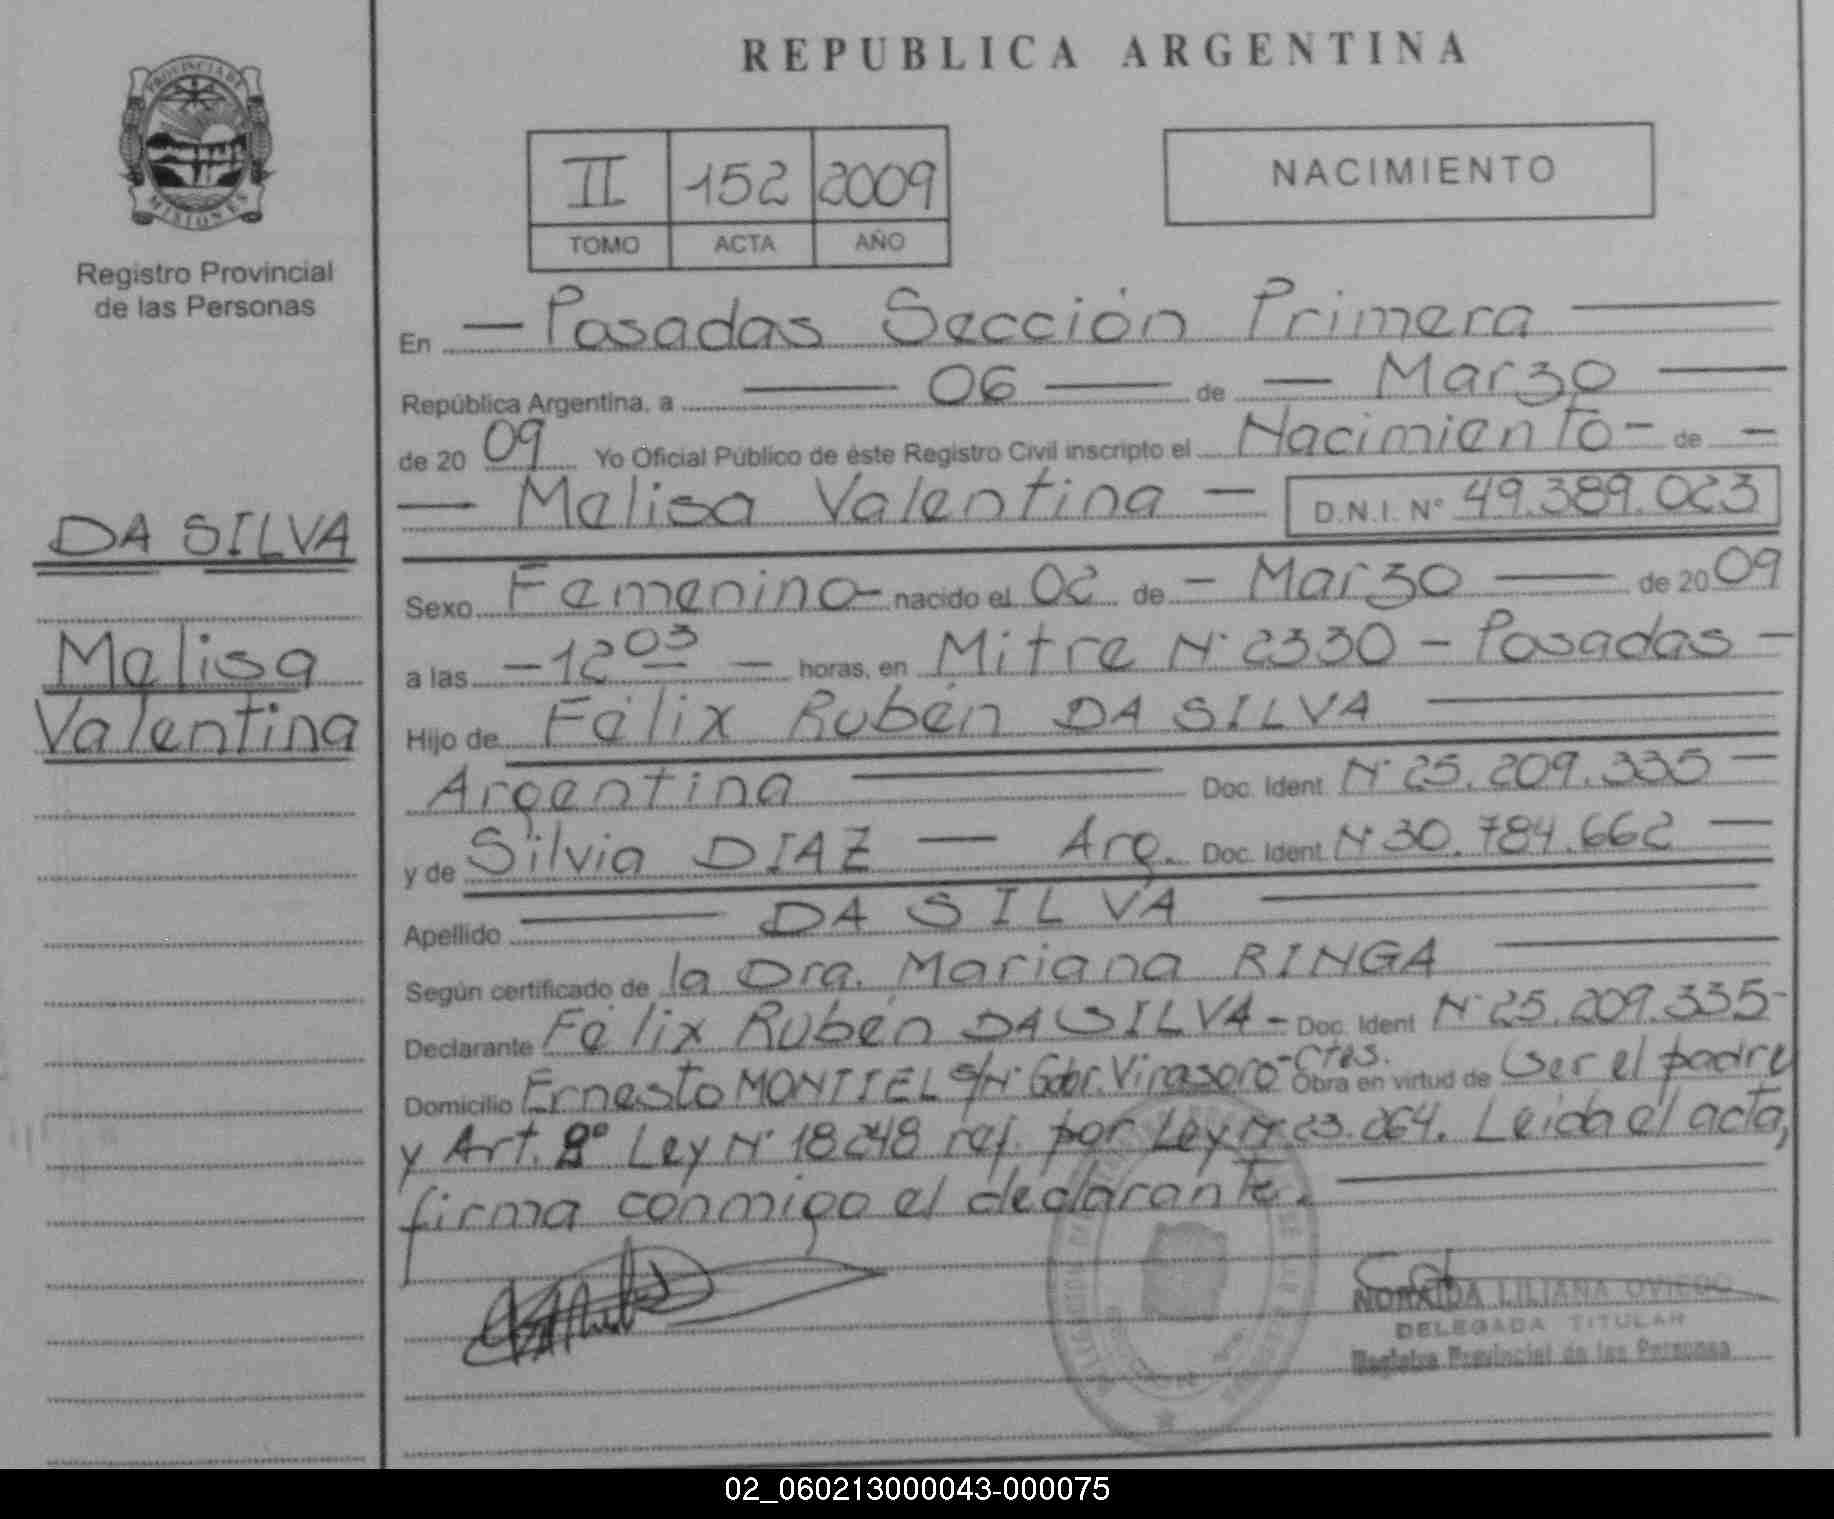 PROVINCIA DE
MISIONES
Registro Provincial
de las Personas
DA SILVA
Melisa
Valentina
REPUBLICA ARGENTINA
II 152 2009
TOMO ACTA AÑO
NACIMIENTO
En — Posadas Sección Primera —
República Argentina, a — 06 — de — Marzo —
de 20 09 Yo Oficial Público de éste Registro Civil inscripto el Nacimiento - de —
— Melisa Valentina — D.N.I. N° 49.389.023
Sexo Femenino - nacido el 02 de - Marzo — de 20 09
a las - 12 03 — horas, en Mitre N° 2330 - Posadas -
Hijo de Félix Rubén DA SILVA —
Argentina — Doc. Ident N° 25.209.335 —
y de Silvia DIAZ — Arg. Doc. Ident N° 30.784.662 —
Apellido — DA SILVA —
Según certificado de la Dra. Mariana RINGA —
Declarante Félix Rubén DA SILVA - Doc. Ident N° 25.209.335-
Domicilio Ernesto MONTIEL S/N° Gdor. Virasoro - Ctes. Obra en virtud de Ser el padre
y Art. 2° Ley N° 18248 ref. por Ley N° 23.264. Leida el acta,
firma conmigo el declarante. —
NORAIDA LILIANA OVIEDO
DELEGADA TITULAR
Registro Provincial de las Personas
02_060213000043-000075